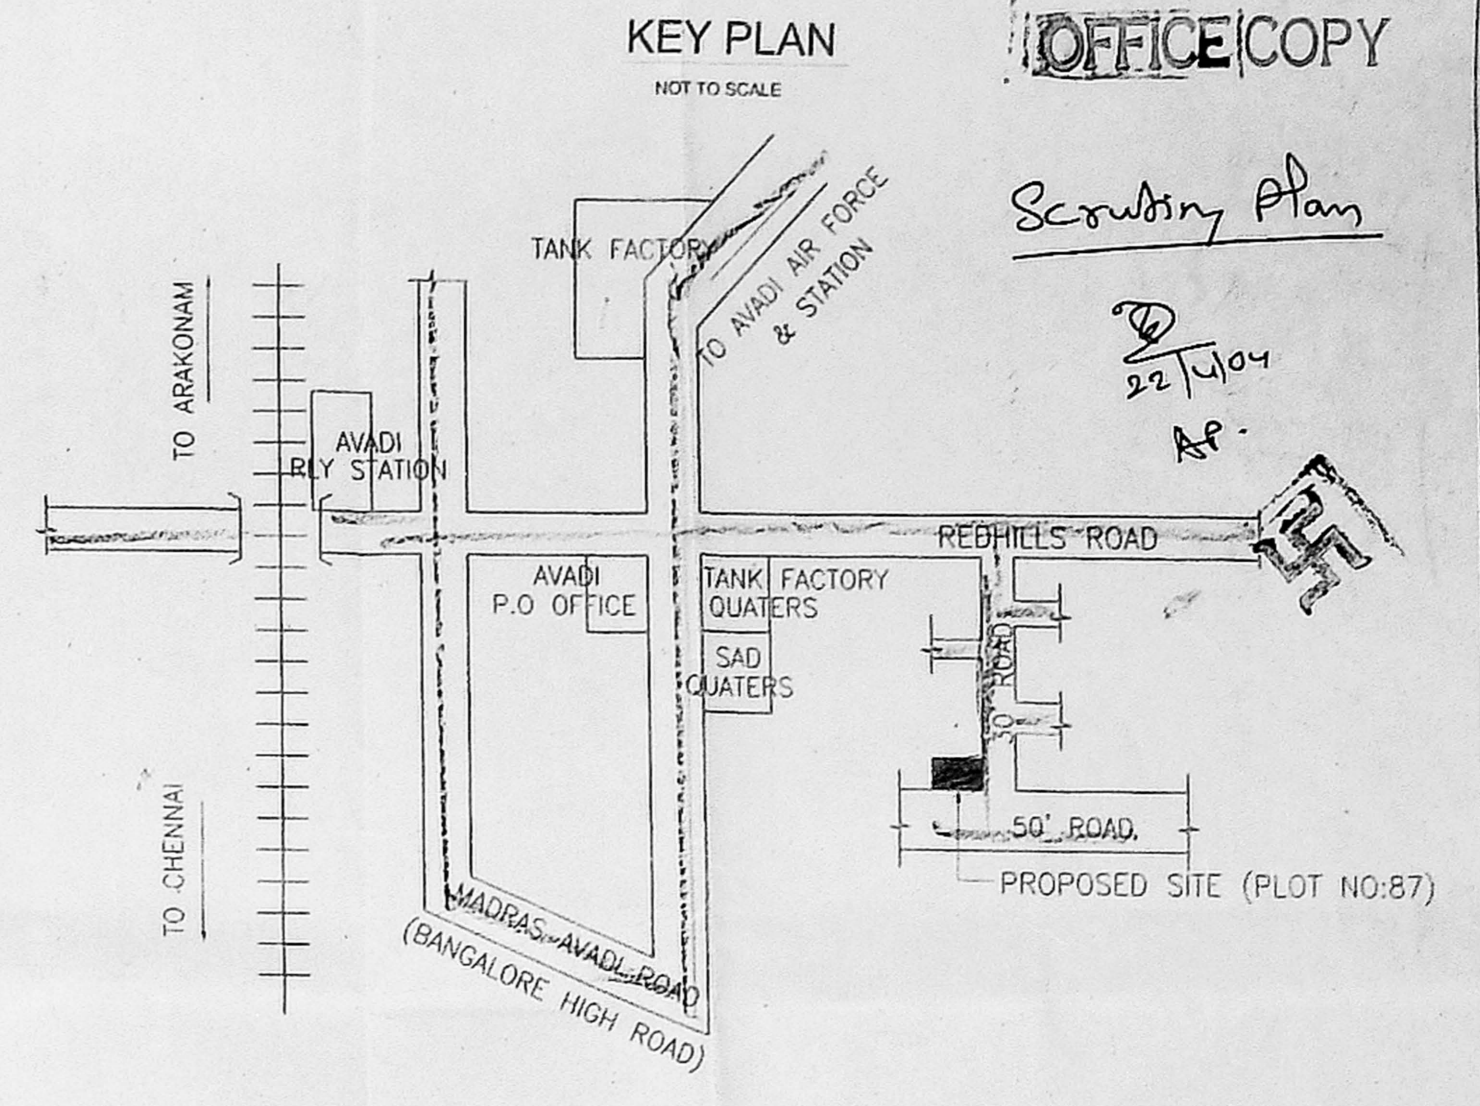 KEY PLAN
NOT TO SCALE
OFFICE COPY
Scrutiny Plan
22/4/04
AP.
TANK FACTORY
TO AVADI AIR FORCE
& STATION
TO ARAKONAM
AVADI
RLY STATION
REDHILLS ROAD
AVADI
P.O OFFICE
TANK FACTORY
QUATERS
SAD
QUATERS
30 ROAD
50' ROAD.
PROPOSED SITE (PLOT NO:87)
TO CHENNAI
MADRAS-AVADI-ROAD
(BANGALORE HIGH ROAD)